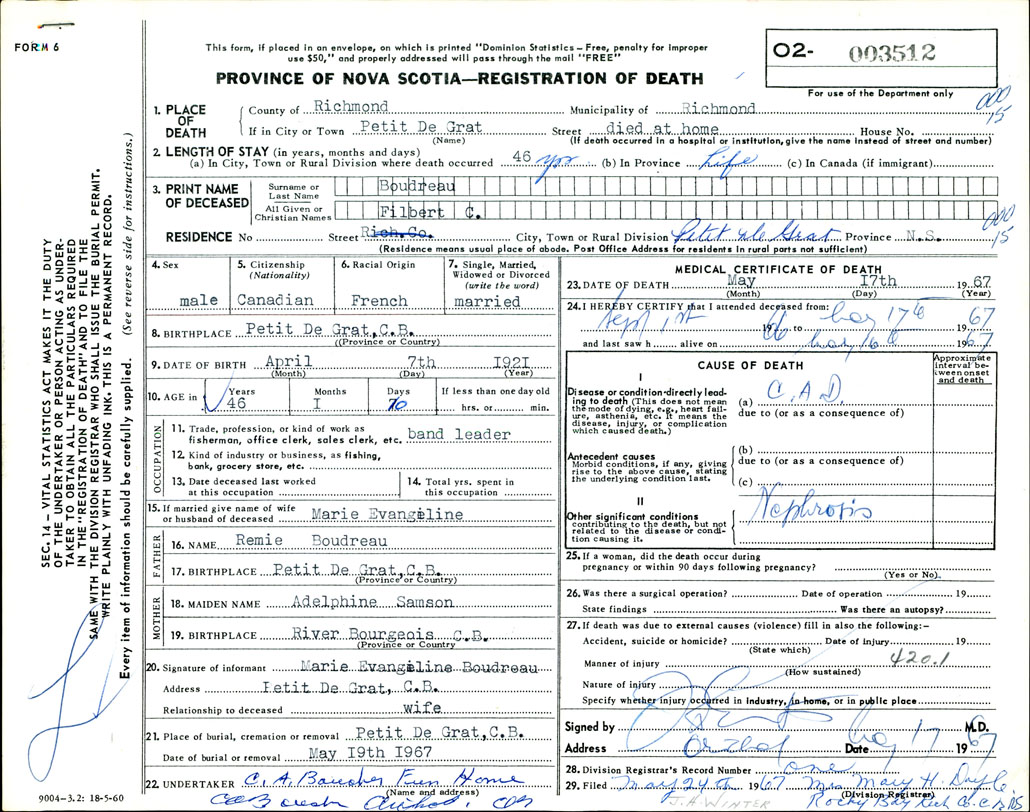 FORM 6
This form, if placed in an envelope, on which is printed "Dominion Statistics – Free, penalty for improper
use $50," and properly addressed will pass through the mail "FREE"
PROVINCE OF NOVA SCOTIA—REGISTRATION OF DEATH
02- 003512
For use of the Department only
000
15
1. PLACE OF DEATH
County of Richmond Municipality of Richmond
If in City or Town Petit De Grat Street died at home House No.
(Name) (If death occurred in a hospital or institution, give the name instead of street and number)
2. LENGTH OF STAY (in years, months and days)
(a) In City, Town or Rural Division where death occurred 46 yrs (b) In Province Life (c) In Canada (if immigrant)
3. PRINT NAME OF DECEASED
Surname or Last Name Boudreau
All Given or Christian Names Filbert C.
000
15
RESIDENCE No Street Rich.Co. City, Town or Rural Division Petit de Grat Province N.S.
(Residence means usual place of abode. Post Office Address for residents in rural parts not sufficient)
4. Sex
male
5. Citizenship
(Nationality)
Canadian
6. Racial Origin
French
7. Single, Married,
Widowed or Divorced
(write the word)
married
8. BIRTHPLACE Petit De Grat,C.B.
(Province or Country)
9. DATE OF BIRTH April 7th I92I
(Month) (Day) (Year)
10. AGE in Years Months Days If less than one day old
46 I 10 hrs. or min.
OCCUPATION
11. Trade, profession, or kind of work as
fisherman, office clerk, sales clerk, etc. band leader
12. Kind of industry or business, as fishing,
bank, grocery store, etc.
13. Date deceased last worked
at this occupation
14. Total yrs. spent in
this occupation
15. If married give name of wife
or husband of deceased Marie Evangeline
FATHER
16. NAME Remie Boudreau
17. BIRTHPLACE Petit De Grat,C.B.
(Province or Country)
MOTHER
18. MAIDEN NAME Adelphine Samson
19. BIRTHPLACE River Bourgeois C.B.
(Province or Country)
20. Signature of informant Marie Evangeline Boudreau
Address Petit De Grat, C.B.
Relationship to deceased wife
21. Place of burial, cremation or removal Petit De Grat,C.B.
Date of burial or removal May I9th I967
22. UNDERTAKER C. A. Boucher Fun Home
(Name and address)
MEDICAL CERTIFICATE OF DEATH
23. DATE OF DEATH May I7th 1967
(Month) (Day) (Year)
24. I HEREBY CERTIFY that I attended deceased from:
Sept 1st 1966 to May 17th 1967
and last saw h alive on May 16th 1967
CAUSE OF DEATH
Approximate interval between onset and death
I
Disease or condition directly lead-
ing to death (This does not mean
the mode of dying, e.g., heart fail-
ure, asthenia, etc. It means the
disease, injury, or complication
which caused death.)
(a) C.A.D.
due to (or as a consequence of)
Antecedent causes
Morbid conditions, if any, giving
rise to the above cause, stating
the underlying condition last.
(b)
due to (or as a consequence of)
(c)
II
Other significant conditions
contributing to the death, but not
related to the disease or condi-
tion causing it.
Nephrosis
25. If a woman, did the death occur during
pregnancy or within 90 days following pregnancy?
(Yes or No).
26. Was there a surgical operation? Date of operation 19
State findings Was there an autopsy?
27. If death was due to external causes (violence) fill in also the following:-
Accident, suicide or homicide? Date of injury 19
(State which)
420.1
Manner of injury
(How sustained)
Nature of injury
Specify whether injury occurred in industry, in home, or in public place
Signed by M.D.
Address Arichat Date May 17 1967
28. Division Registrar's Record Number one
29. Filed May 24th 1967 Mrs Mary H. Doyle
(Division Registrar)
J.H. WINTER
SEC. 14 – VITAL STATISTICS ACT MAKES IT THE DUTY
OF THE UNDERTAKER OR PERSON ACTING AS UNDER-
TAKER TO OBTAIN ALL THE PARTICULARS REQUIRED
IN THE "REGISTRATION OF DEATH" AND TO FILE THE
SAME WITH THE DIVISION REGISTRAR WHO SHALL ISSUE THE BURIAL PERMIT.
WRITE PLAINLY WITH UNFADING INK. THIS IS A PERMANENT RECORD.
Every item of information should be carefully supplied. (See reverse side for instructions.)
9004-3.2: 18-5-60